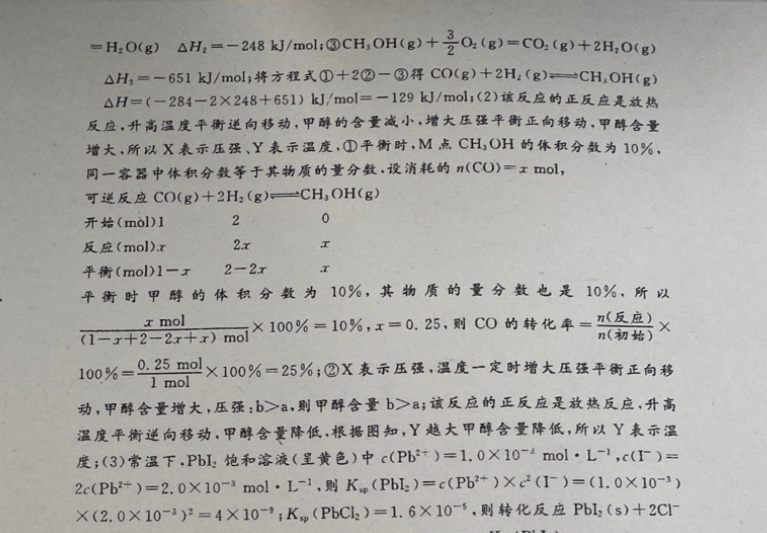 =H₂O(g) ΔH₂=-248 kJ/mol;③CH₃OH(g)+3/2O₂(g)=CO₂(g)+2H₂O(g)
ΔH₃=-651 kJ/mol;将方程式①+2②-③得 CO(g)+2H₂(g)⇌CH₃OH(g)
ΔH=(-284-2×248+651) kJ/mol=-129 kJ/mol;(2)该反应的正反应是放热
反应,升高温度平衡逆向移动,甲醇的含量减小,增大压强平衡正向移动,甲醇含量
增大,所以X表示压强、Y表示温度,①平衡时,M点 CH₃OH 的体积分数为10%,
同一容器中体积分数等于其物质的量分数,设消耗的 n(CO)=x mol,
可逆反应 CO(g)+2H₂(g)⇌CH₃OH(g)
开始(mol)1 2 0
反应(mol)x 2x x
平衡(mol)1-x 2-2x x
平衡时甲醇的体积分数为 10%,其物质的量分数也是 10%,所以
x mol/(1-x+2-2x+x) mol×100%=10%,x=0.25,则 CO 的转化率=n(反应)/n(初始)×
100%=0.25 mol/1 mol×100%=25%;②X表示压强,温度一定时增大压强平衡正向移
动,甲醇含量增大,压强:b>a,则甲醇含量 b>a;该反应的正反应是放热反应,升高
温度平衡逆向移动,甲醇含量降低,根据图知,Y越大甲醇含量降低,所以Y表示温
度;(3)常温下,PbI₂ 饱和溶液(呈黄色)中 c(Pb²⁺)=1.0×10⁻³ mol·L⁻¹,c(I⁻)=
2c(Pb²⁺)=2.0×10⁻³ mol·L⁻¹,则 Kₛₚ(PbI₂)=c(Pb²⁺)×c²(I⁻)=(1.0×10⁻³)
×(2.0×10⁻³)²=4×10⁻⁹;Kₛₚ(PbCl₂)=1.6×10⁻⁵,则转化反应 PbI₂(s)+2Cl⁻